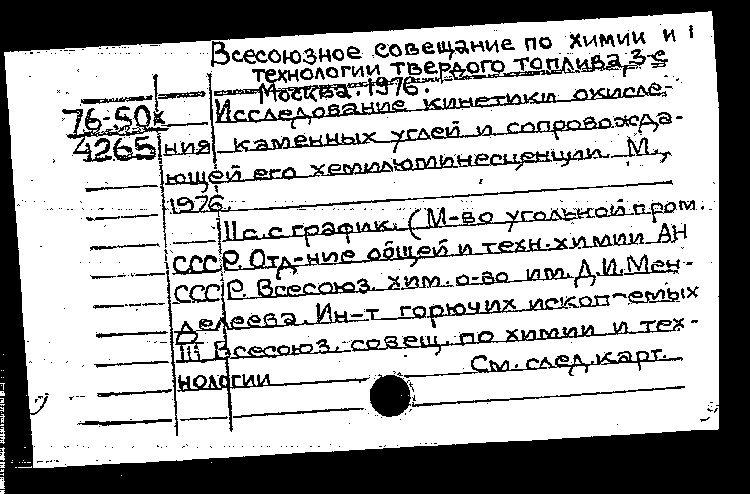 Всесоюзное совещание по химии и 1
технологии твердого топлива, 3-е
Москва. 1976.
76-50к
4265
Исследование кинетики окисле-
ния каменных углей и сопровожда-
ющей его хемилюминесценции. М.,
1976.
11 с. с график. (М-во угольной пром.
СССР. Отд-ние общей и техн. химии АН
СССР. Всесоюз. хим. о-во им. Д.И. Мен-
делеева. Ин-т горючих ископ-емых
III Всесоюз. совещ. по химии и тех-
нологии
См. след. карт.